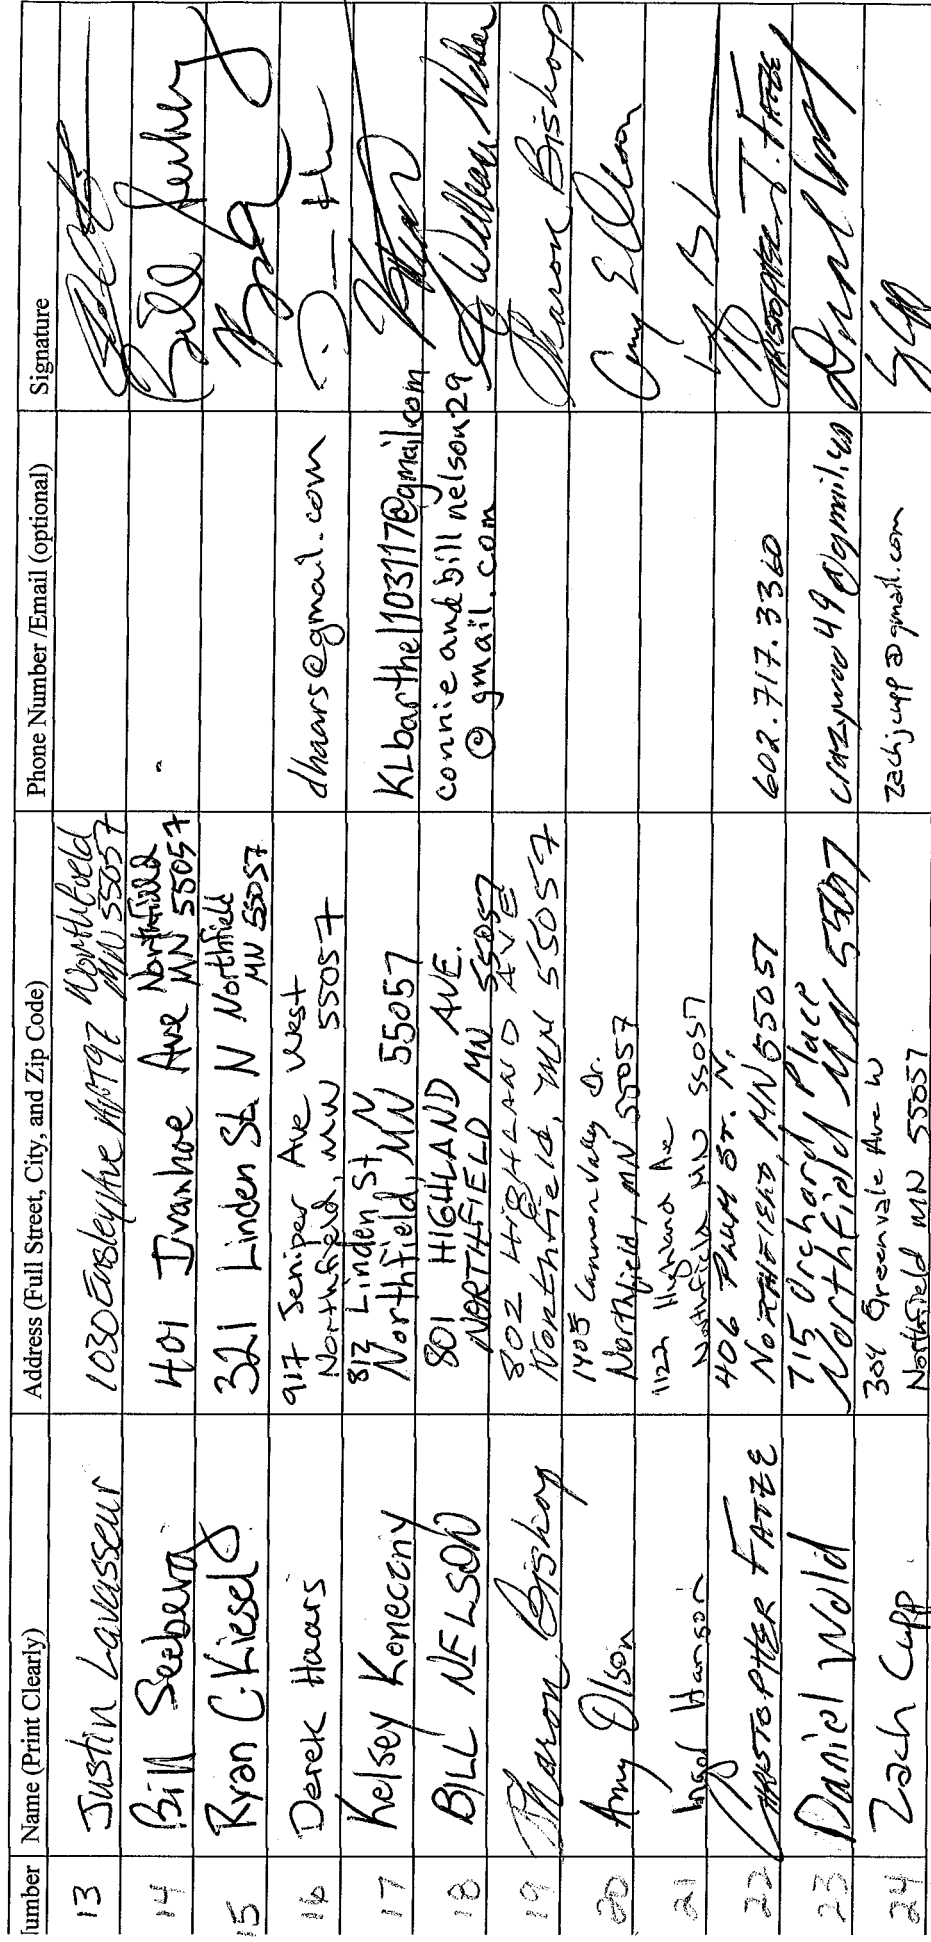 umber Name (Print Clearly) Address (Full Street, City, and Zip Code) Phone Number /Email (optional) Signature
13 Justin Lavasseur 1030 Northfield
MN 55057
14 Bill Seeberg 401 Ivanhoe Ave Northfield
MN 55057 Bill
15 Ryan C. Kiesel 321 Linden St. N Northfield
MN 55057
16 Derek Haars 917 Jeniper Ave West
Northfield, MN 55057 dhaars@gmail.com
17 Kelsey Koneczny 813 Linden St N
Northfield, MN 55057 KLbarthel103117@gmail.com
18 BILL NELSON 801 HIGHLAND AVE.
NORTHFIELD MN 55057 connie and bill nelson29
@ gmail.com
19 Sharon Bishop 802 HIGHLAND AVE
Northfield, MN 55057 Sharon Bishop
20 Amy Olson 1405 Cannon Valley Dr.
Northfield, MN 55057 Amy E Olson
21 Hanson 1122 Highland Ave
Northfield MN 55057
22 CHRISTOPHER TATGE 406 PLUM ST. N.
NORTHFIELD, MN 55057 602.717.3360 CHRISTOPHER T. TATGE
23 Daniel Wold 715 Orchard Place
Northfield MN 55057
24 Zach Cupp 304 Greenvale Ave W
Northfield MN 55057 zachjcupp@gmail.com